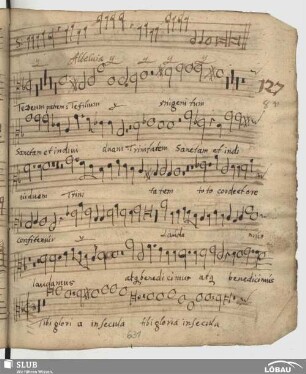 Alleluia ij ij ij ij
127
Te Deum patrem Te filium ij unigenitum
Sanctam et indivi duam Trinitatem Sanctam et indi
viduam Trini tatem toto corde et ore
confitemur ij Lauda mus
laudamus atq benedicimus atq benedicimus
Tibi glori a in secula tibi gloria in secula
SLUB
LÖBAU